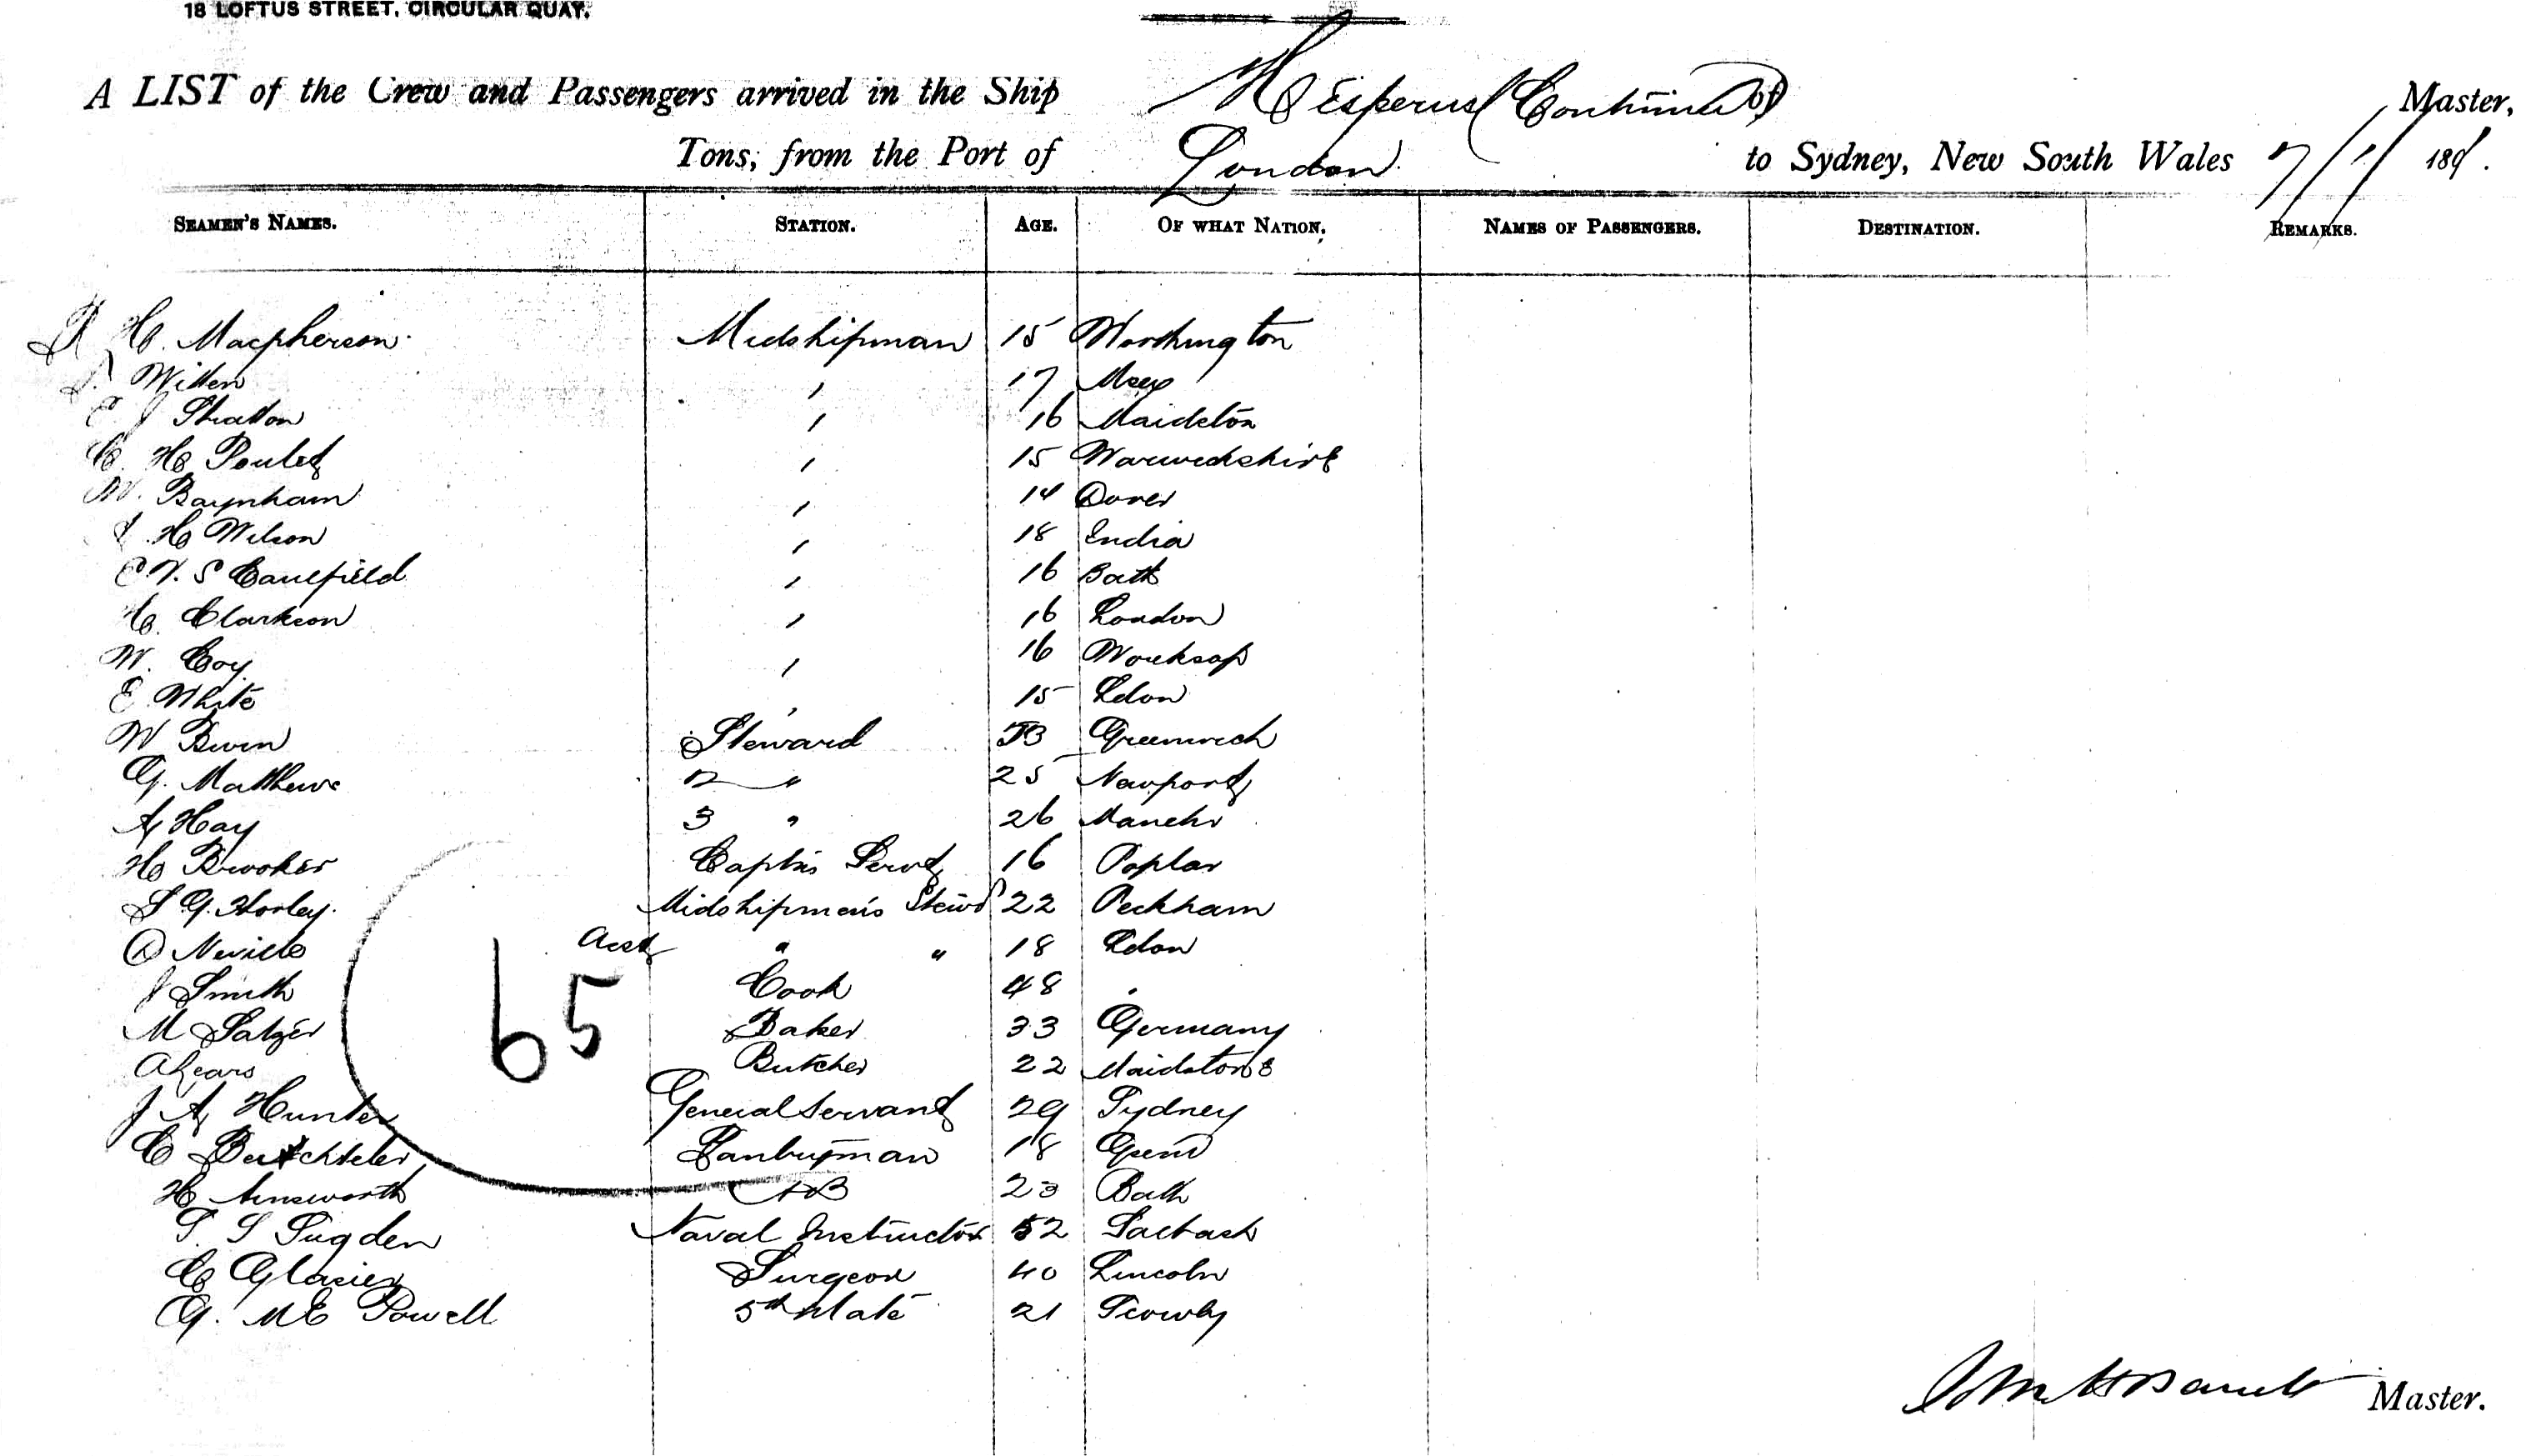 18 LOFTUS STREET, CIRCULAR QUAY.
A LIST of the Crew and Passengers arrived in the Ship Hesperus (Continued) of Master,
Tons, from the Port of London to Sydney, New South Wales 7/1/ 189 .
SEAMEN'S NAMES. STATION. AGE. OF WHAT NATION. NAMES OF PASSENGERS. DESTINATION. REMARKS.
H. Macpherson Midshipman 15 Worthington
Witten " 17
E J Stratton " 16 Maidston
C. H Poulet " 15 Warwickshire
W. Baynham " 14 Dover
H Wilson " 18 India
S Caulfield " 16 Bath
H. Clarkson " 16 London
W. Coy " 16 Worksop
E White " 15 Ldon
W Bwen Steward 53 Greenwich
G. Matthews 2 " 25 Newport
A Hay 3 " 26 Manchr
H Brooker Capt'ns Servt 16 Poplar
S G. Horley Midshipmen's Stewd 22 Peckham
Neville Asst " " 18 Ldon
J Smith Cook 48 "
M Salzer Baker 33 Germany
A Gears Butcher 22 Maidstone
J A Hunter General Servant 29 Sydney
C Pantryman 18
H Ainsworth AB 23 Bath
T. S Sugden Naval Instructor 52 Saltash
C Glasier Surgeon 40 Lincoln
G. Mc Powell 5th Mate 21
65
Master.